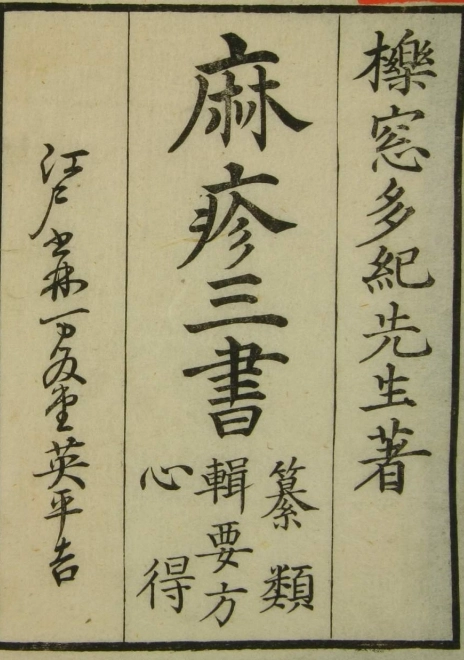 櫟窓多紀先生著
麻疹三書
纂類
輯要方
心得
江戸書林万笈堂英平吉